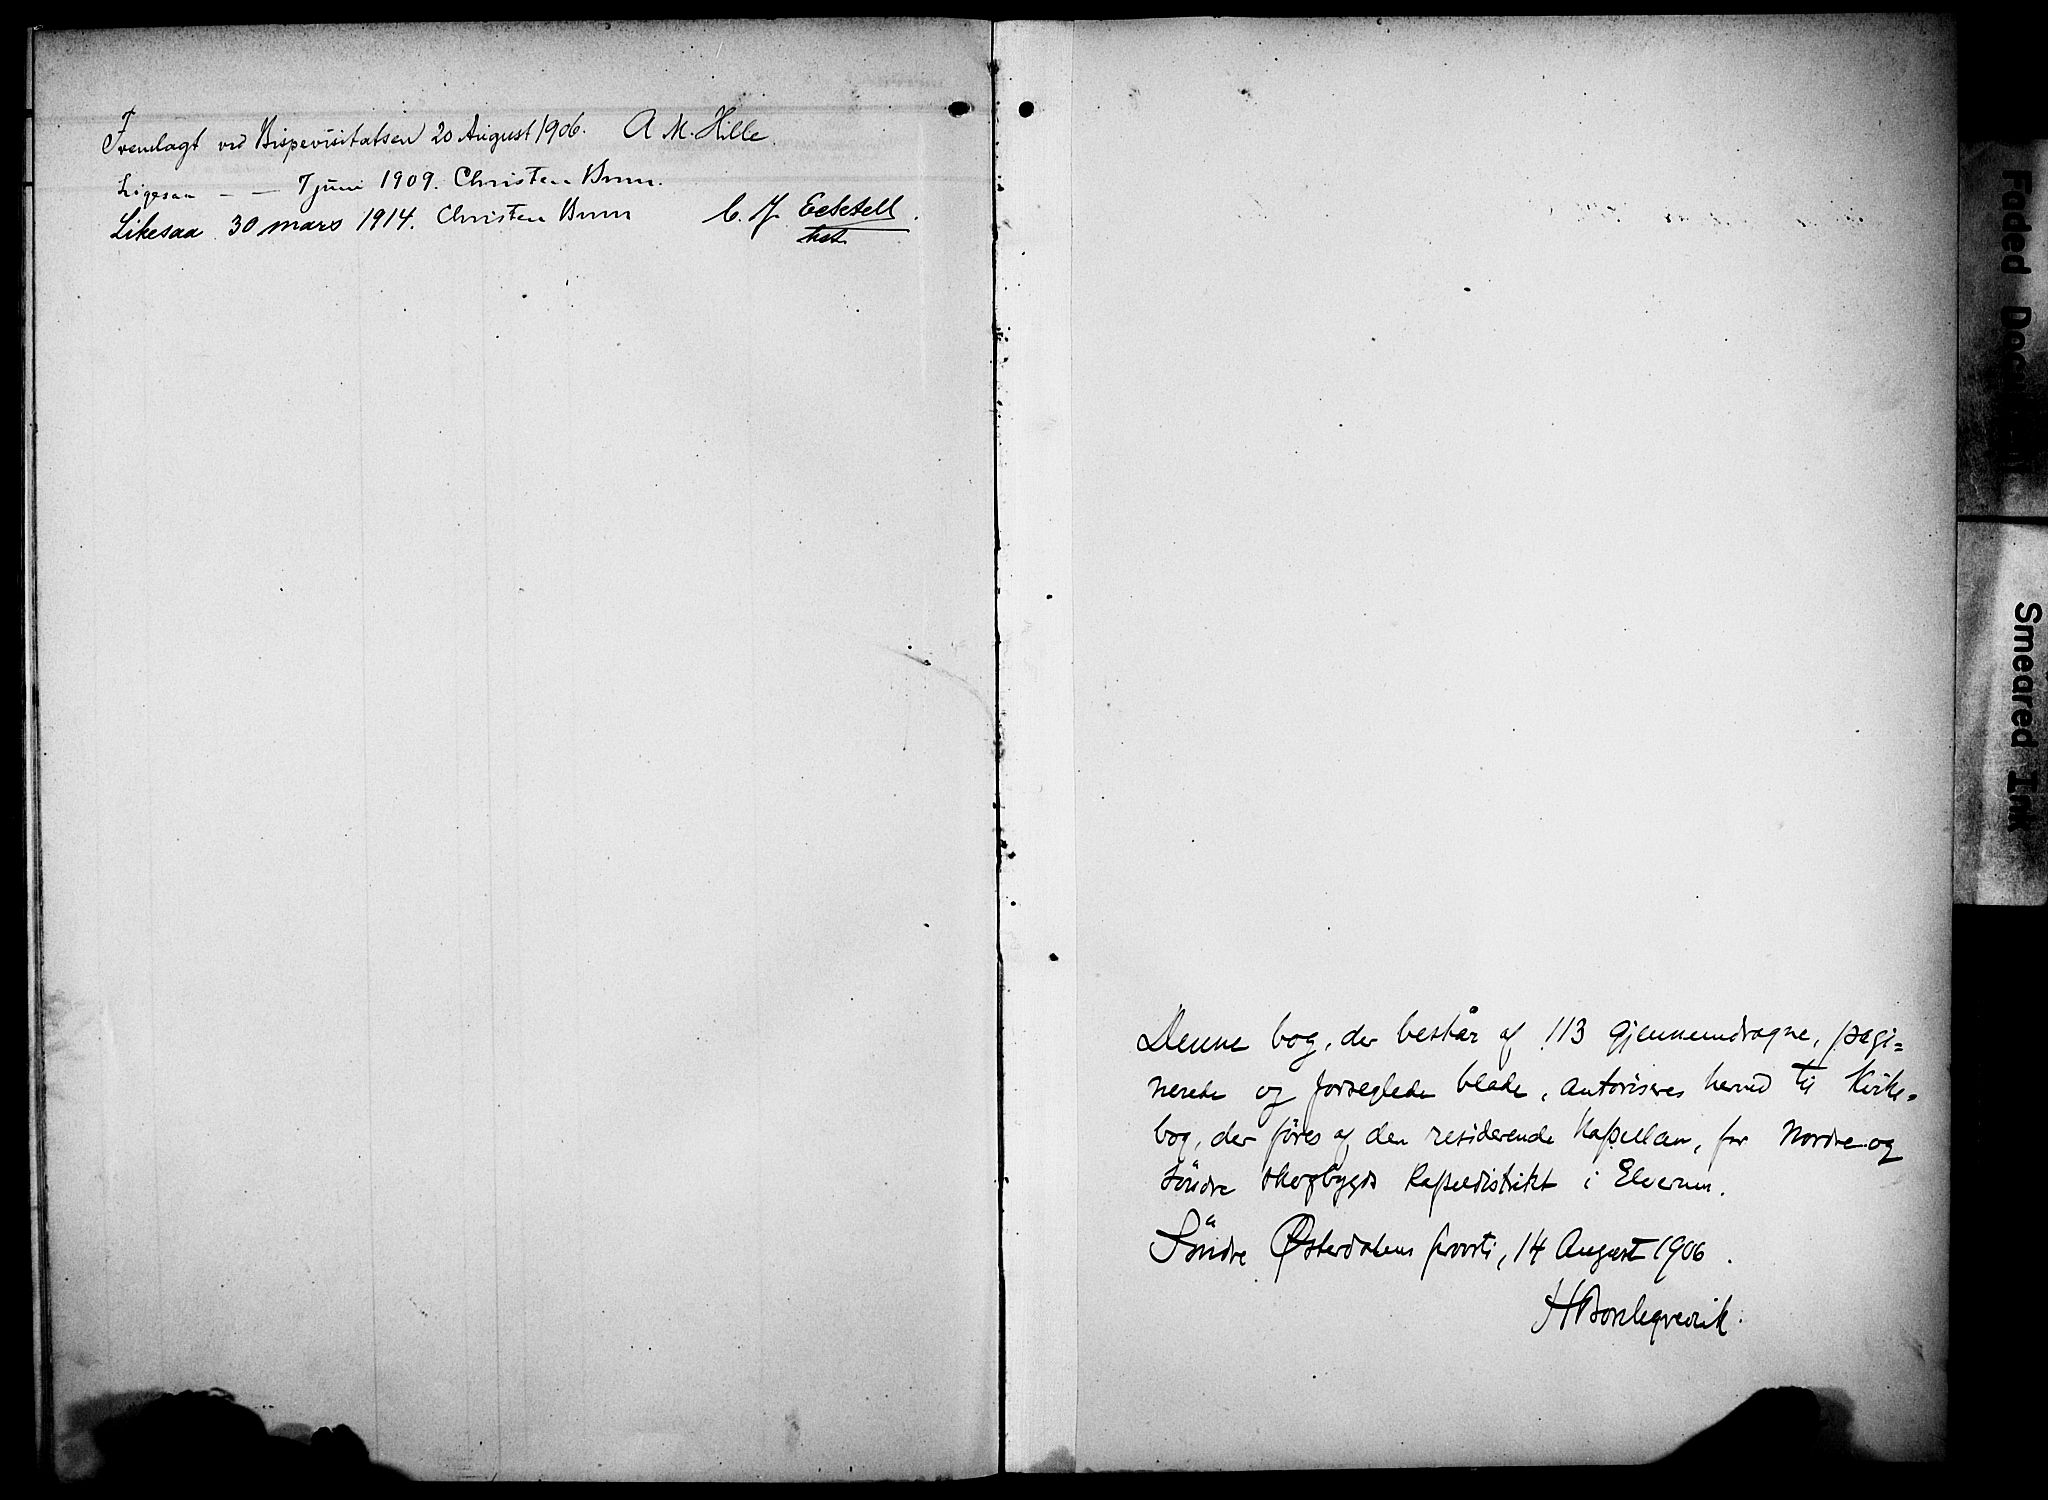 Fremlagt ved Bispevisitatsen 20 August 1906. A M. Hille.
Ligesaa — — 7 juni 1909. Christen Brun.
Likesaa 30 mars 1914. Christen Brun
C. J.
Denne bog, der består af 113 gjennemdragne, pagi=
nerede og forseglede blade, autoriseres herved til Kirke=
bog, der føres af den residerende Kapellan, for Nordre og
Søndre Skogbygds Kapeldistrikt i Elverum.
Søndre Østerdalens provsti, 14 August 1906.
Faded Document
Smeared Ink